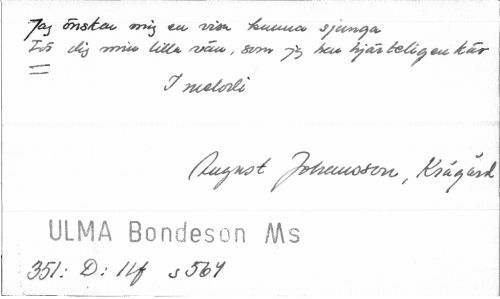 Jag önskar mig en visa kunna sjunga
För dig min lilla vän, som jag har hjärteligen kär
1 melodi
August Johansson, Krågård
ULMA Bondeson Ms
351: D: 11f s 564